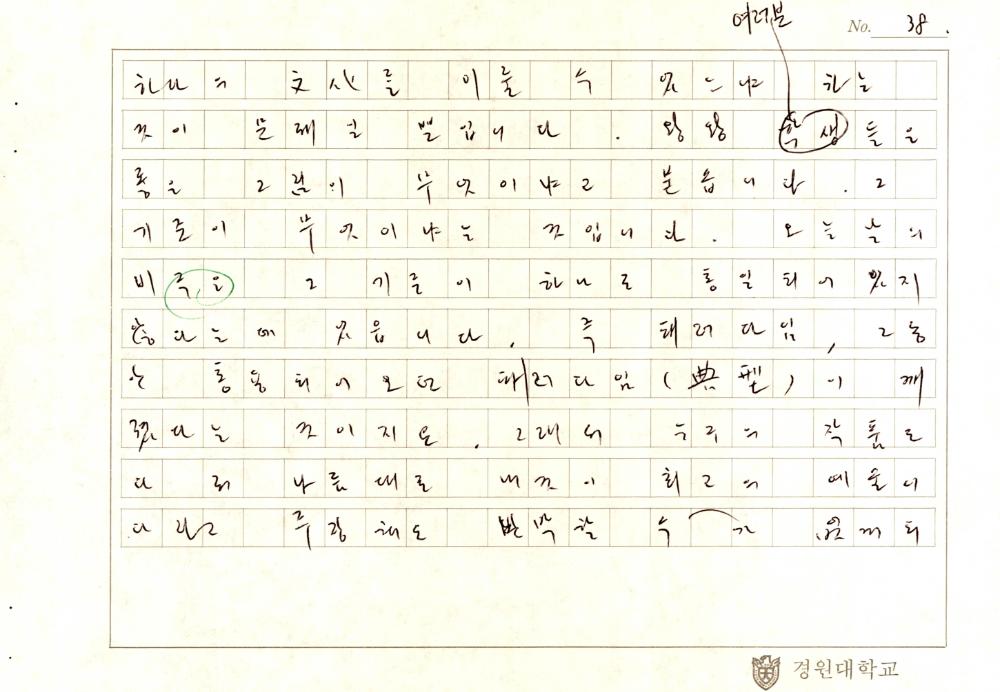 여러분
No. 38.
하나의 文化를 이룰 수 있느냐 하는
것이 문제일 뿐입니다. 왕왕 학생들은
좋은 그림이 무엇이냐고 묻습니다. 그
기준이 무엇이냐는 것입니다. 오늘날의
비극은 그 기준이 하나로 통일되어 있지
않다는데 있읍니다. 즉 패러다임, 그동
안 통용되어오던 패러다임(典型)이 깨
졌다는 것이지요. 그래서 누구의 작품도
다 제 나름대로 내것이 최고의 예술이
다라고 주장해도 반박할 수가 없게 되
경원대학교